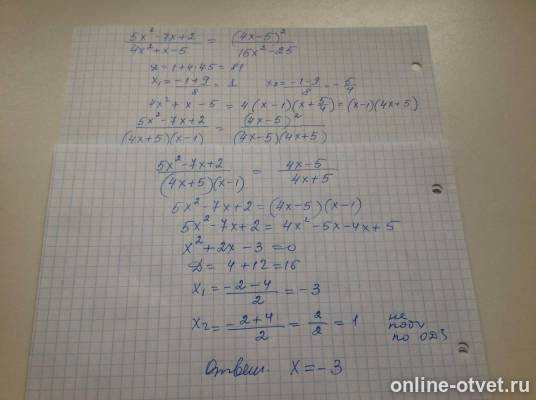 5x² - 7x + 2 / 4x² + x - 5 = (4x - 5)² / 16x² - 25
D = 1 + 4·4·5 = 81
x₁ = -1+9 / 8 = 1 x₂ = -1-9 / 8 = - 5/4
4x² + x - 5 = 4(x - 1)(x + 5/4) = (x - 1)(4x + 5)
5x² - 7x + 2 / (4x + 5)(x - 1) = (4x - 5)² / (4x - 5)(4x + 5)
5x² - 7x + 2 / (4x + 5)(x - 1) = 4x - 5 / 4x + 5
5x² - 7x + 2 = (4x - 5)(x - 1)
5x² - 7x + 2 = 4x² - 5x - 4x + 5
x² + 2x - 3 = 0
D = 4 + 12 = 16
x₁ = -2-4 / 2 = -3
x₂ = -2+4 / 2 = 2/2 = 1 не подх по ОДЗ
Ответ: x = -3
online-otvet.ru